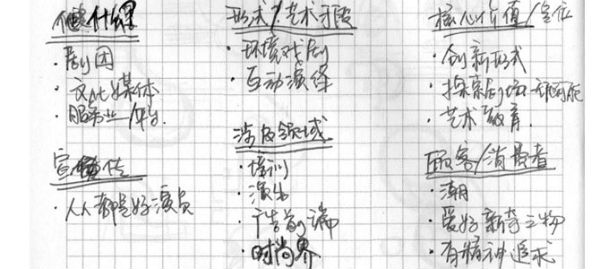 做什么
·剧团
·文化媒体
·服务业
宣传
·人人都是好演员
形式/艺术手段
·环境戏剧
·互动演绎
涉及领域
·培训
·演出
·广告前端
·时尚界
核心价值/定位
·创新形式
·探索剧场
·艺术教育
顾客/消费者
·潮
·爱好新奇之物
·有精神追求